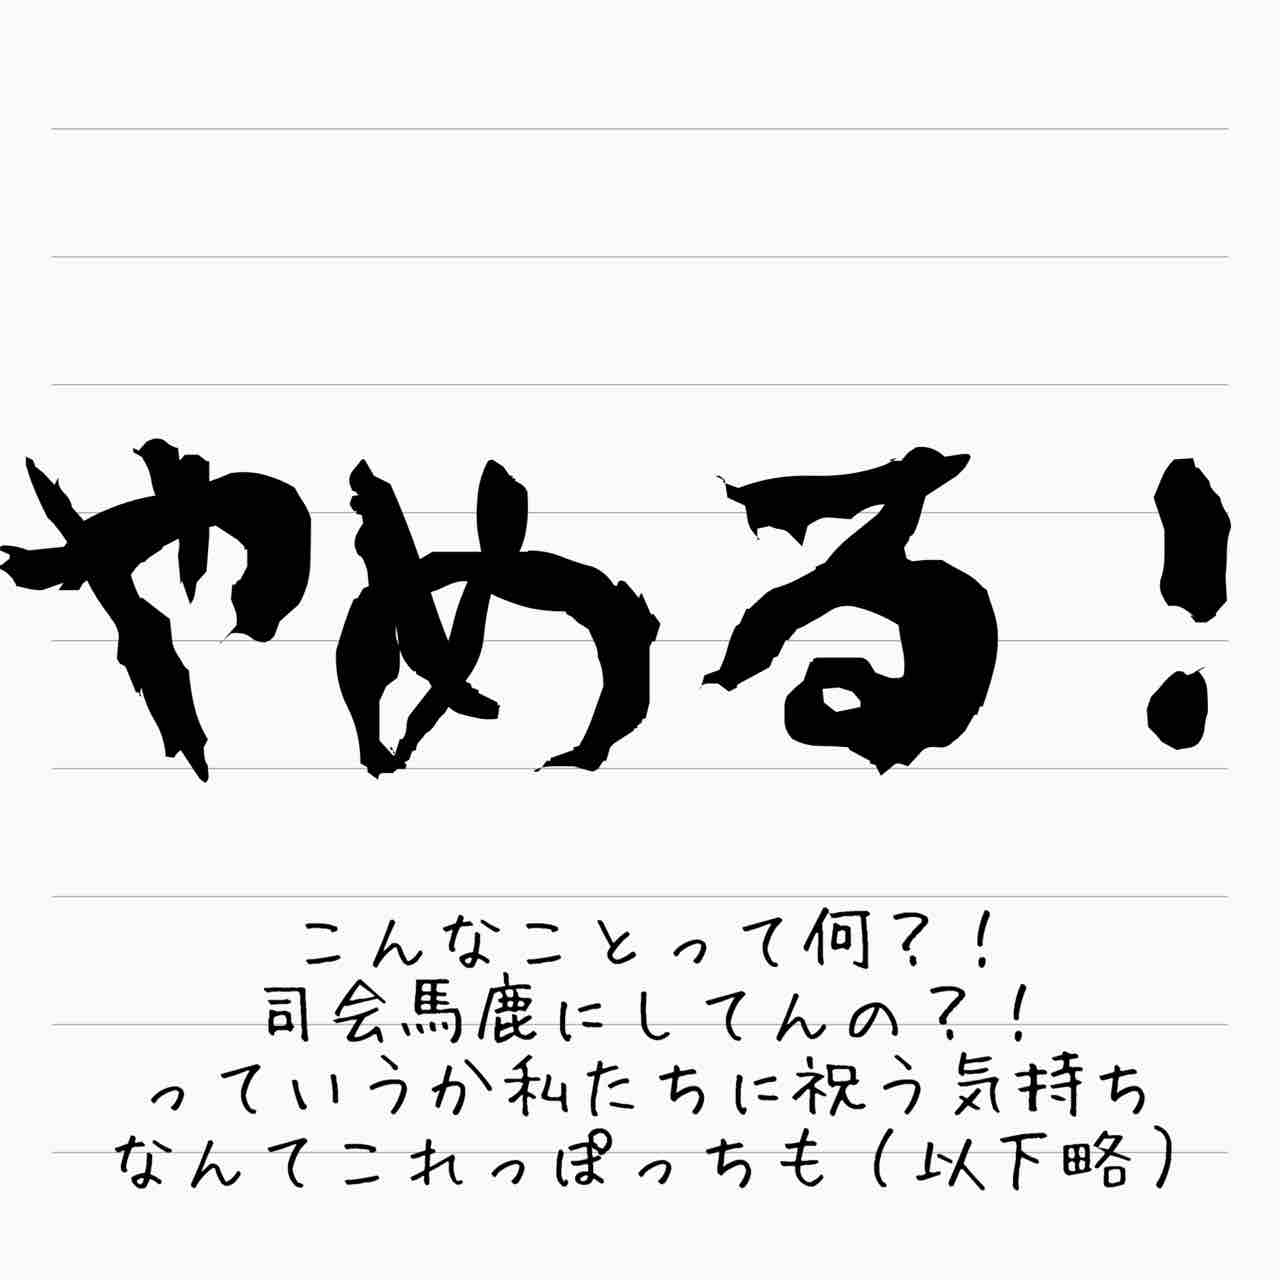 やめる！
こんなことって何？！
司会馬鹿にしてんの？！
っていうか私たちに祝う気持ち
なんてこれっぽっちも（以下略）